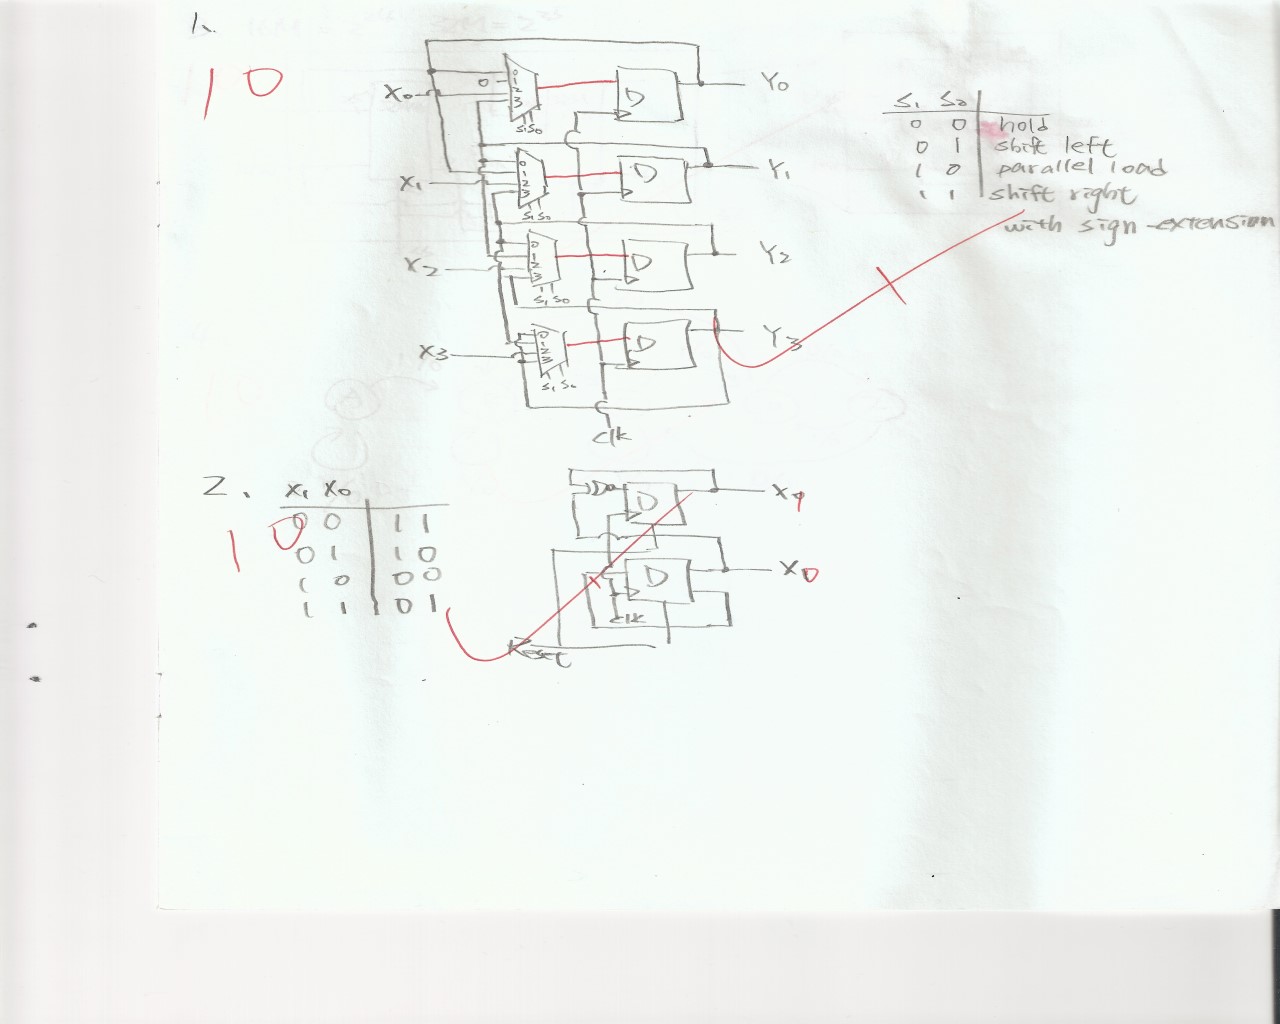 1.
10
X0 0 0 1 2 3 S1 S0 D Y0
X1 0 1 2 3 S1 S0 D Y1
X2 0 1 2 3 S1 S0 D Y2
X3 0 1 2 3 S1 S0 D Y3
clk
S1 S0
0 0 hold
0 1 shift left
1 0 parallel load
1 1 shift right
with sign-extension
2.
10
X1 X0
0 0 1 1
0 1 1 0
1 0 0 0
1 1 0 1
D X1
D X0
clk
Reset